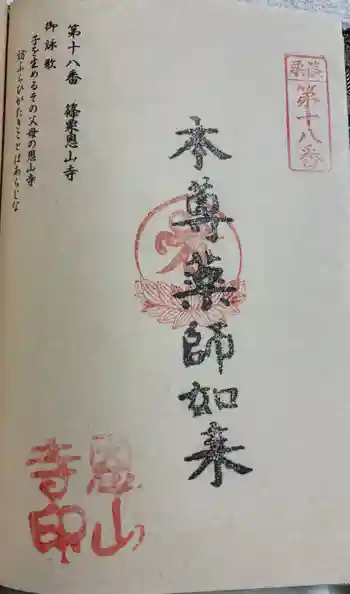 篠栗
第十八番
本尊薬師如来
第十八番 篠栗恩山寺
御詠歌
子を生めるその父母の恩山寺
訪ふらひがたきことはあらじな
恩山
寺印